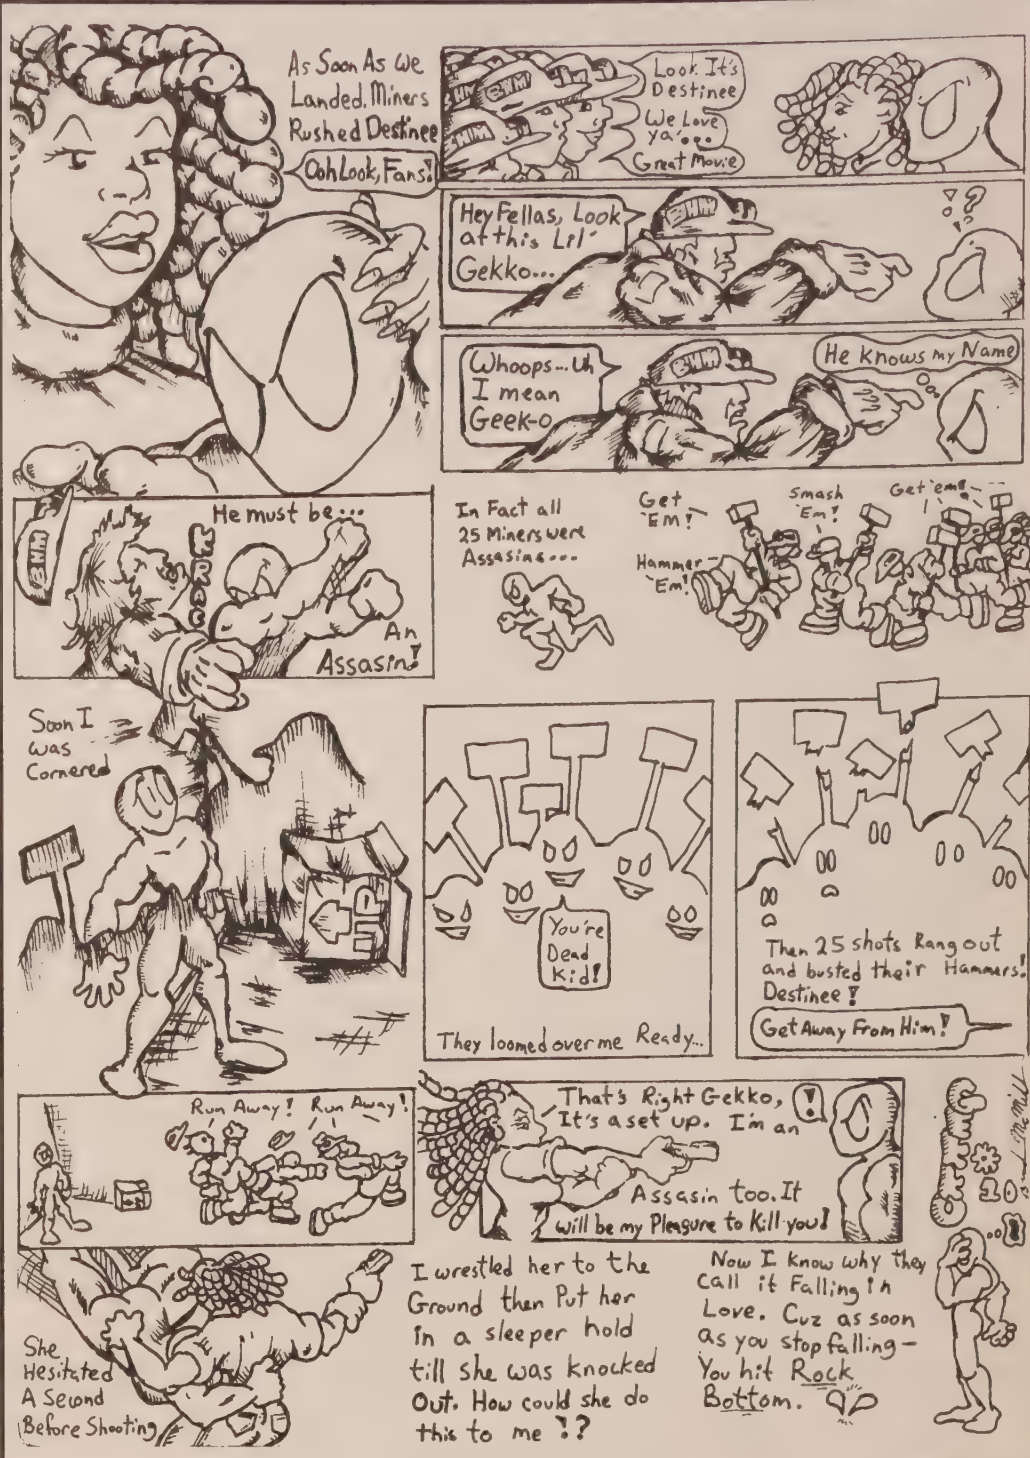 As Soon As We
Landed, Miners
Rushed Destinee
Ooh Look, Fans!
BHM
BHM
BHM
Look It's
Destinee
We Love
ya'...
Great Movie
Hey Fellas, Look
at this Lil'
Gekko...
BHM
?
Whoops...Uh
I mean
Geek-o
BHM
He knows my Name
BHM
He must be...
SMACK
An
Assasin!
In Fact all
25 Miners were
Assasins...
Get
'Em!
Hammer
'Em!
Smash
'Em!
Get 'em!
Soon I
was
Cornered
UP
You're
Dead
Kid!
They loomed over me Ready...
Then 25 shots Rang out
and busted their Hammers!
Destinee!
Get Away From Him!
Run Away! Run Away!
That's Right Gekko,
It's a set up. I'm an
!
Assasin too. It
will be my Pleasure to Kill you!
She
Hesitated
A Second
Before Shooting
I wrestled her to the
Ground then Put her
in a sleeper hold
till she was knocked
Out. How could she do
this to me !?
Now I know why they
call it Falling in
Love. Cuz as soon
as you stop falling-
You hit Rock
Bottom.
10